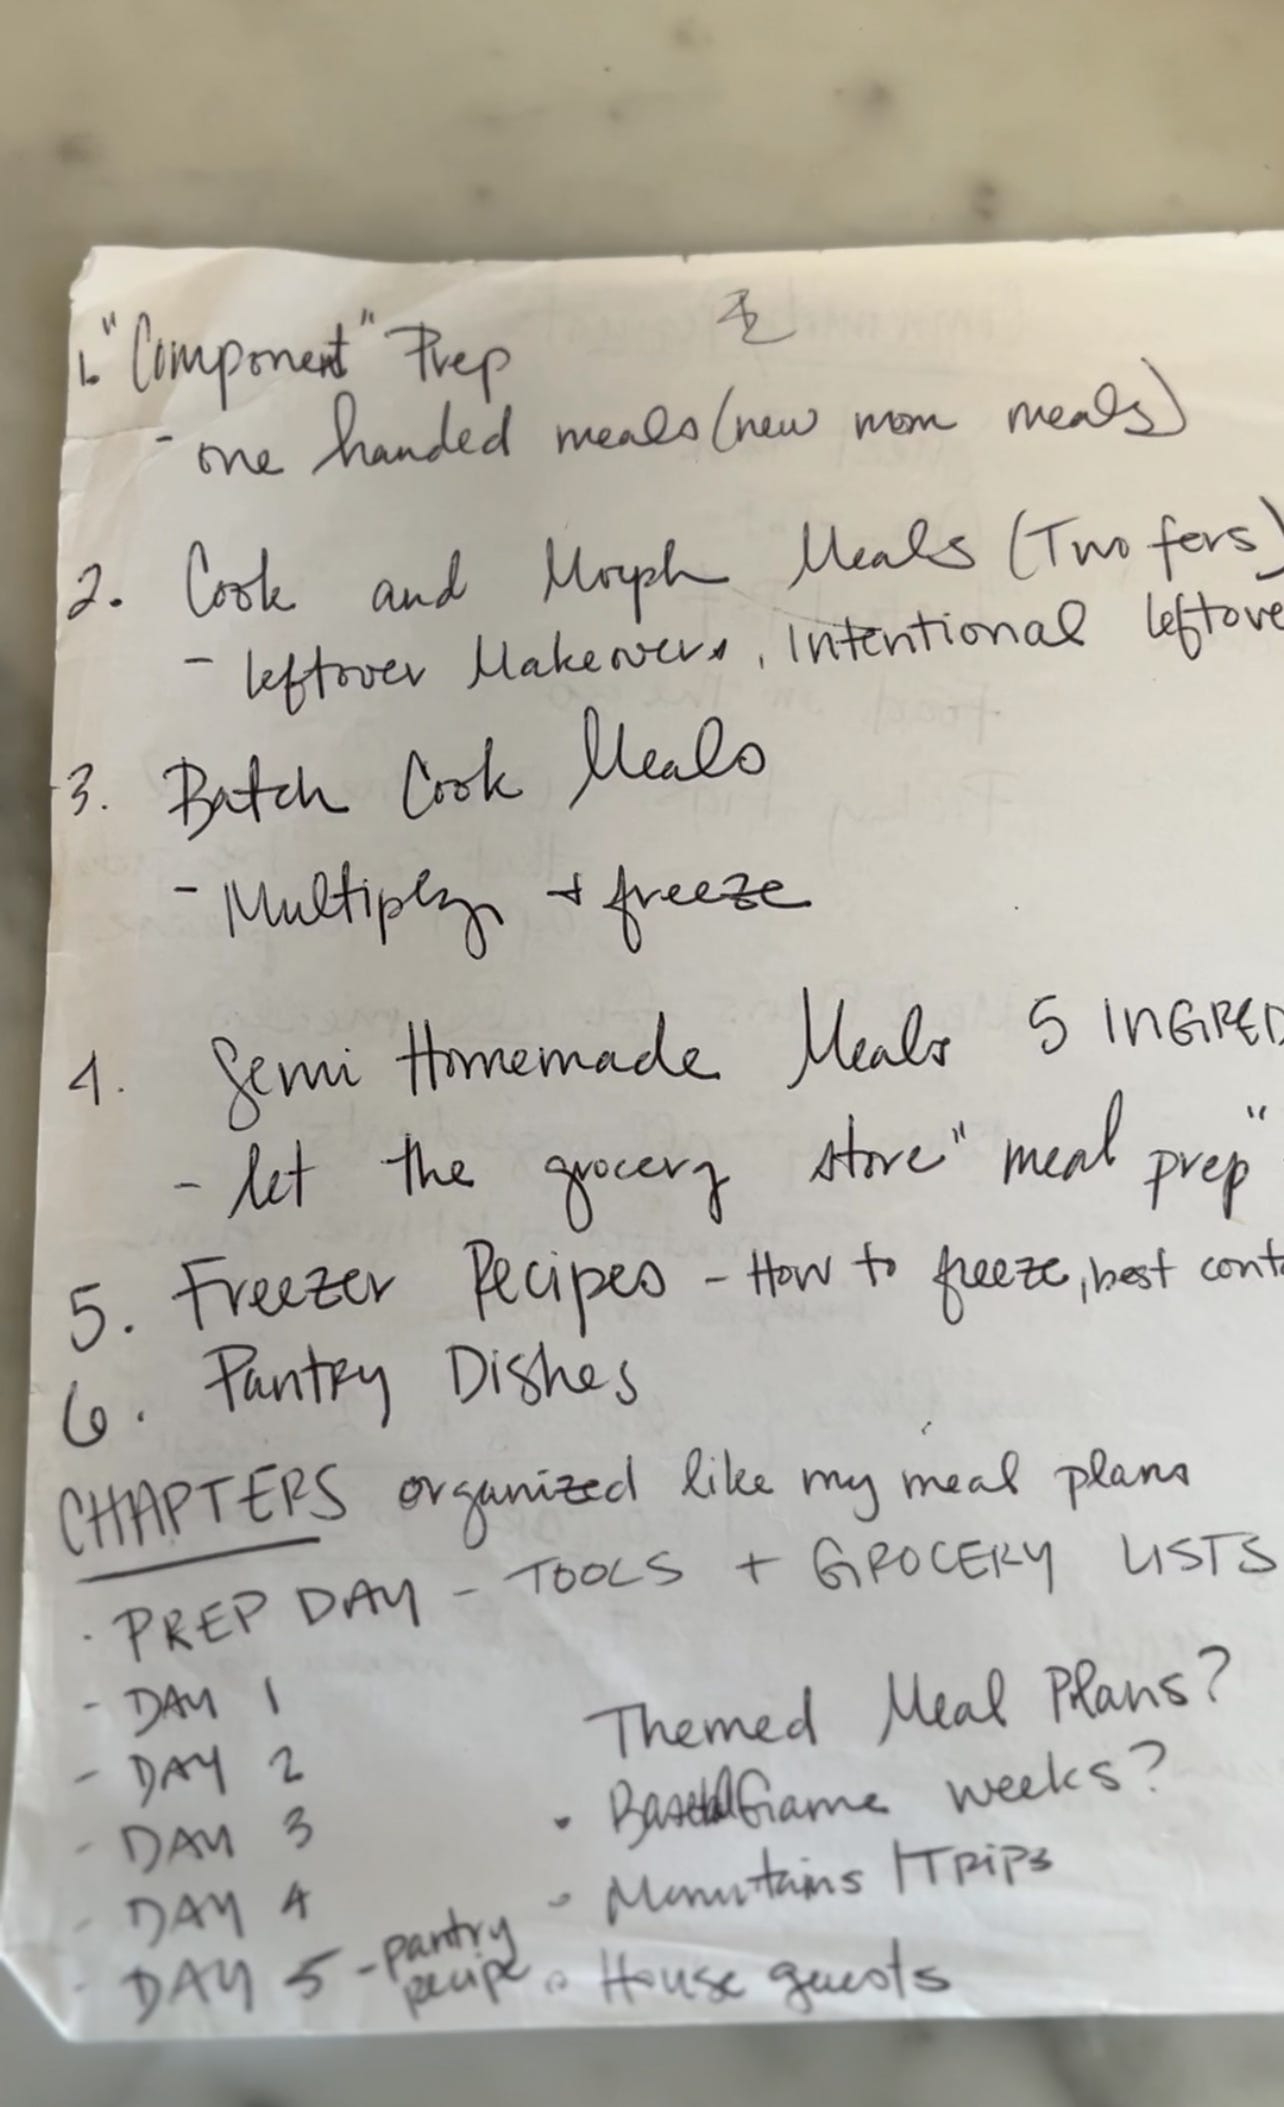 1. "Component" Prep
- one handed meals (new mom meals)
2. Cook and Morph Meals (Two fers)
- leftover Makeovers, Intentional leftove
3. Batch Cook Meals
- Multiply + freeze
4. Semi Homemade Meals 5 INGRED
- let the grocery store "meal prep"
5. Freezer Recipes - How to freeze, best cont
6. Pantry Dishes
CHAPTERS organized like my meal plans
· PREP DAY - TOOLS + GROCERY LISTS
- DAY 1
- DAY 2
- DAY 3
- DAY 4
- DAY 5 - pantry recipe
Themed Meal Plans?
• Game weeks?
• Mountains / TRIPS
• House guests